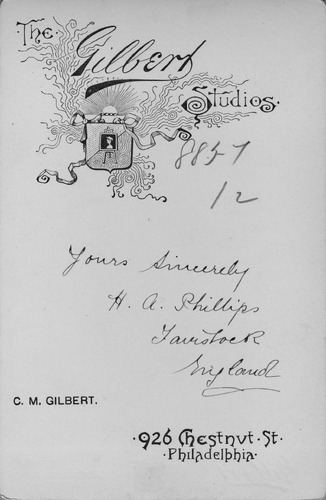 The
Gilbert
Studios.
8857
/2
Yours Sincerely
H. A. Phillips
Tavistock
England
C. M. GILBERT.
·926 Chestnut·St·
·Philadelphia·